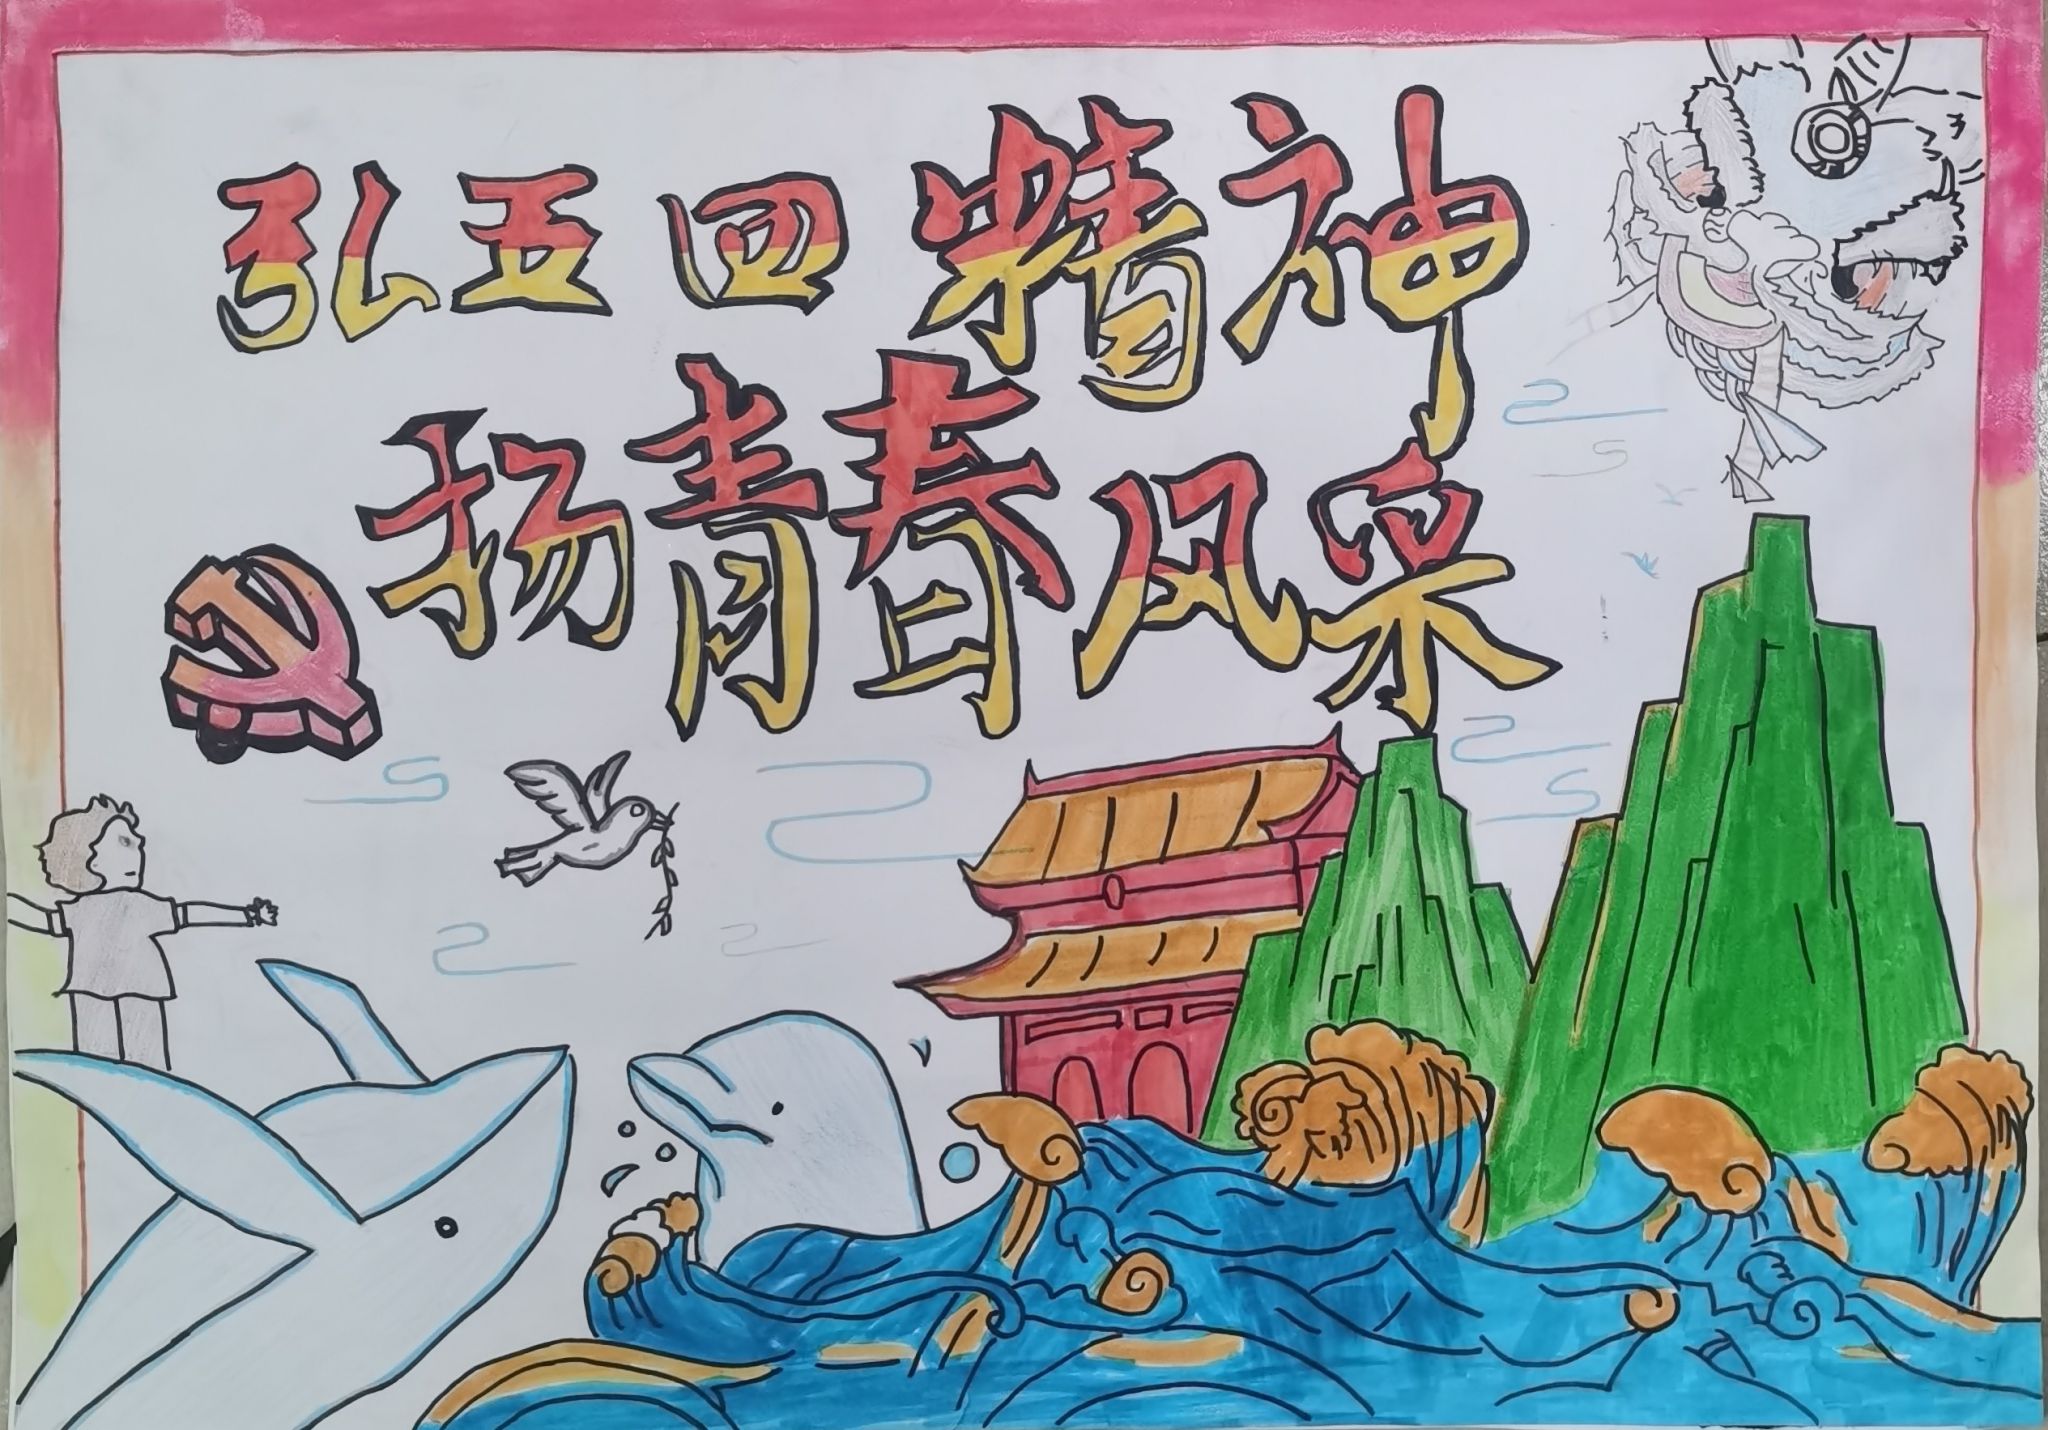 弘五四精神
扬青春风采